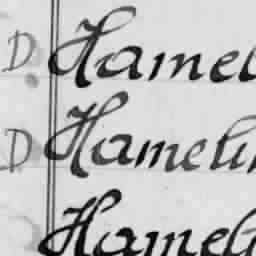 D. Hamel
D Hamelin
Hameli